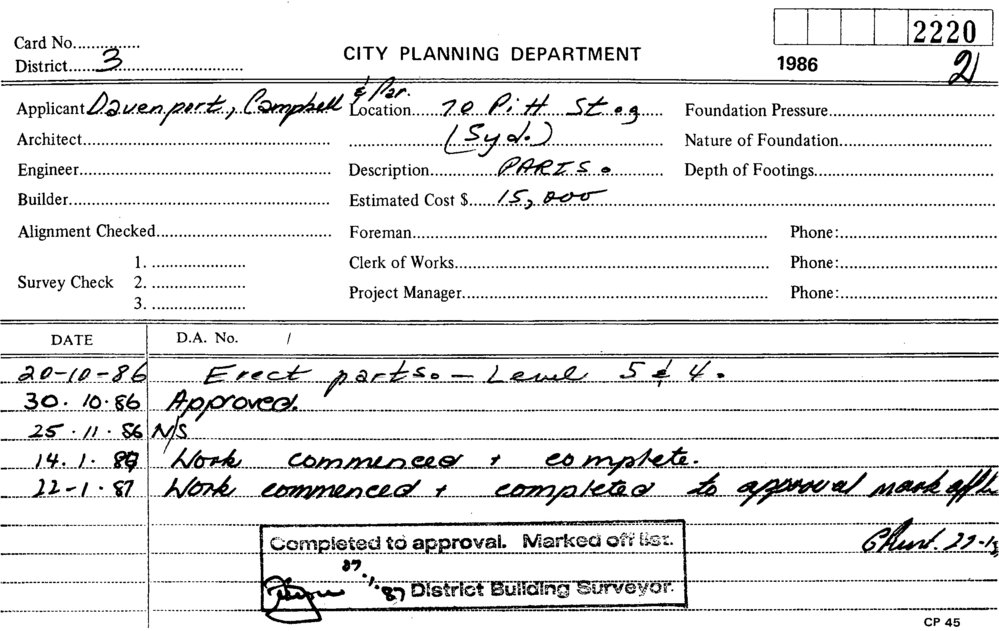 2220
Card No.
District 3
CITY PLANNING DEPARTMENT
1986
2
Applicant Davenport, Campbell & Par.
Location 70 Pitt St
(Syd.)
Foundation Pressure
Architect
Nature of Foundation
Engineer
Description PARTS.
Depth of Footings
Builder
Estimated Cost $ 15,000
Alignment Checked
Foreman
Phone:
Survey Check
1.
2.
3.
Clerk of Works
Phone:
Project Manager
Phone:
DATE D.A. No. /
20-10-86 Erect parts. - Level 5 & 4.
30.10.86 Approved.
25.11.86 N/S
14.1.87 Work commenced + complete.
22-1.87 Work commenced + completed to approval mark off
22-1
Completed to approval. Marked off list.
27.1.87 District Building Surveyor.
CP 45